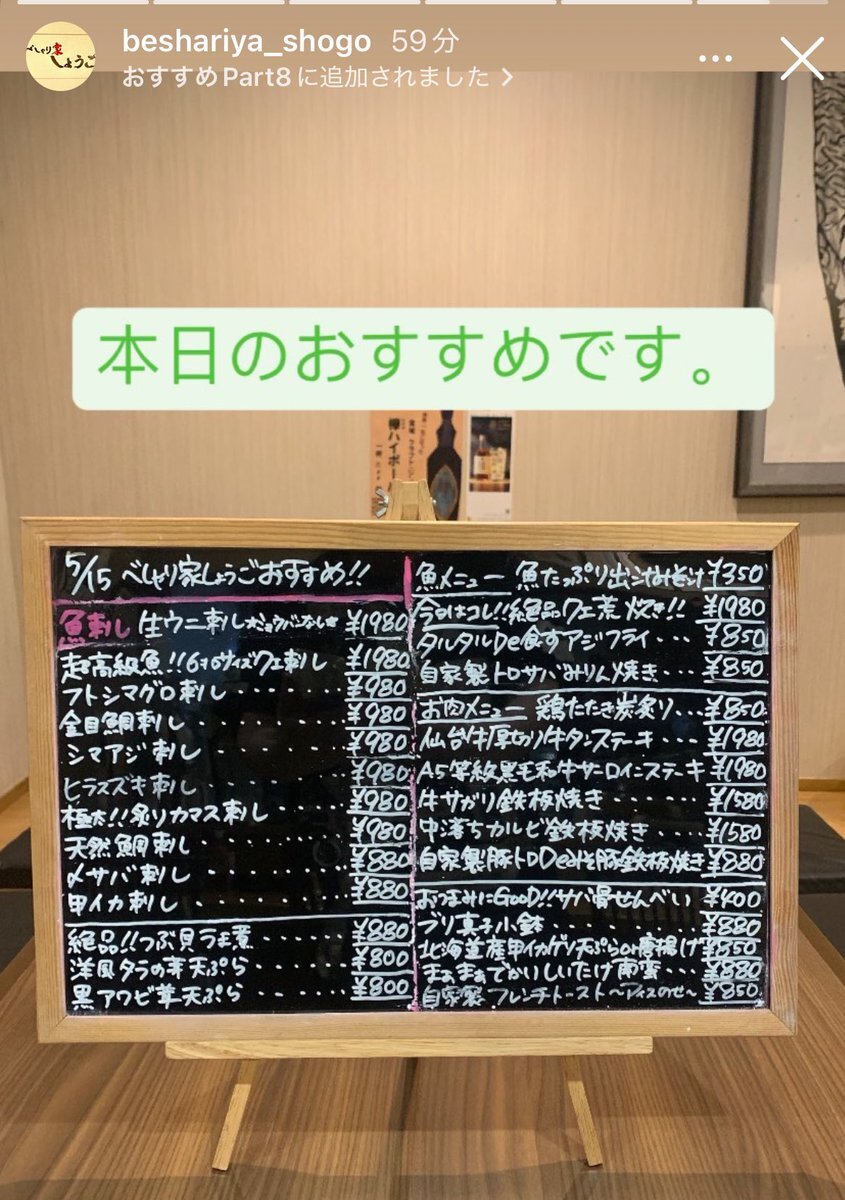 べしゃり家
しょうご
beshariya_shogo 59分
おすすめPart8に追加されました
本日のおすすめです。
5/15 べしゃり家しょうごおすすめ!!
魚刺し 生ウニ刺し ¥1980
超高級魚!!6キロサイズクエ刺し ¥1980
フトシマグロ刺し ¥980
金目鯛刺し ¥980
シマアジ刺し ¥980
ヒラスズキ刺し ¥980
極太!!炙りカマス刺し ¥980
天然鯛刺し ¥980
〆サバ刺し ¥880
甲イカ刺し ¥880
絶品!!つぶ貝うま煮 ¥880
洋風タラの芽天ぷら ¥800
黒アワビ茸天ぷら ¥800
魚メニュー 魚たっぷり出汁みそ汁 ¥350
今日はコレ!!絶品クエ荒炊き!! ¥1980
タルタルDe食すアジフライ ¥850
自家製トロサバみりん焼き ¥850
お肉メニュー 鶏たたき炭炙り ¥850
仙台牛厚切り牛タンステーキ ¥1980
A5等級黒毛和牛サーロインステーキ ¥1980
牛サガリ鉄板焼き ¥1580
中落ちカルビ鉄板焼き ¥1580
自家製豚トロDeみそ豚鉄板焼き ¥880
おつまみにGooD!!サバ骨せんべい ¥400
ブリ真子小鉢 ¥880
北海道産甲イカゲソ天ぷらor唐揚げ ¥850
まぁまぁでかいしいたけ南蛮 ¥880
自家製フレンチトースト〜アイスのせ〜 ¥850